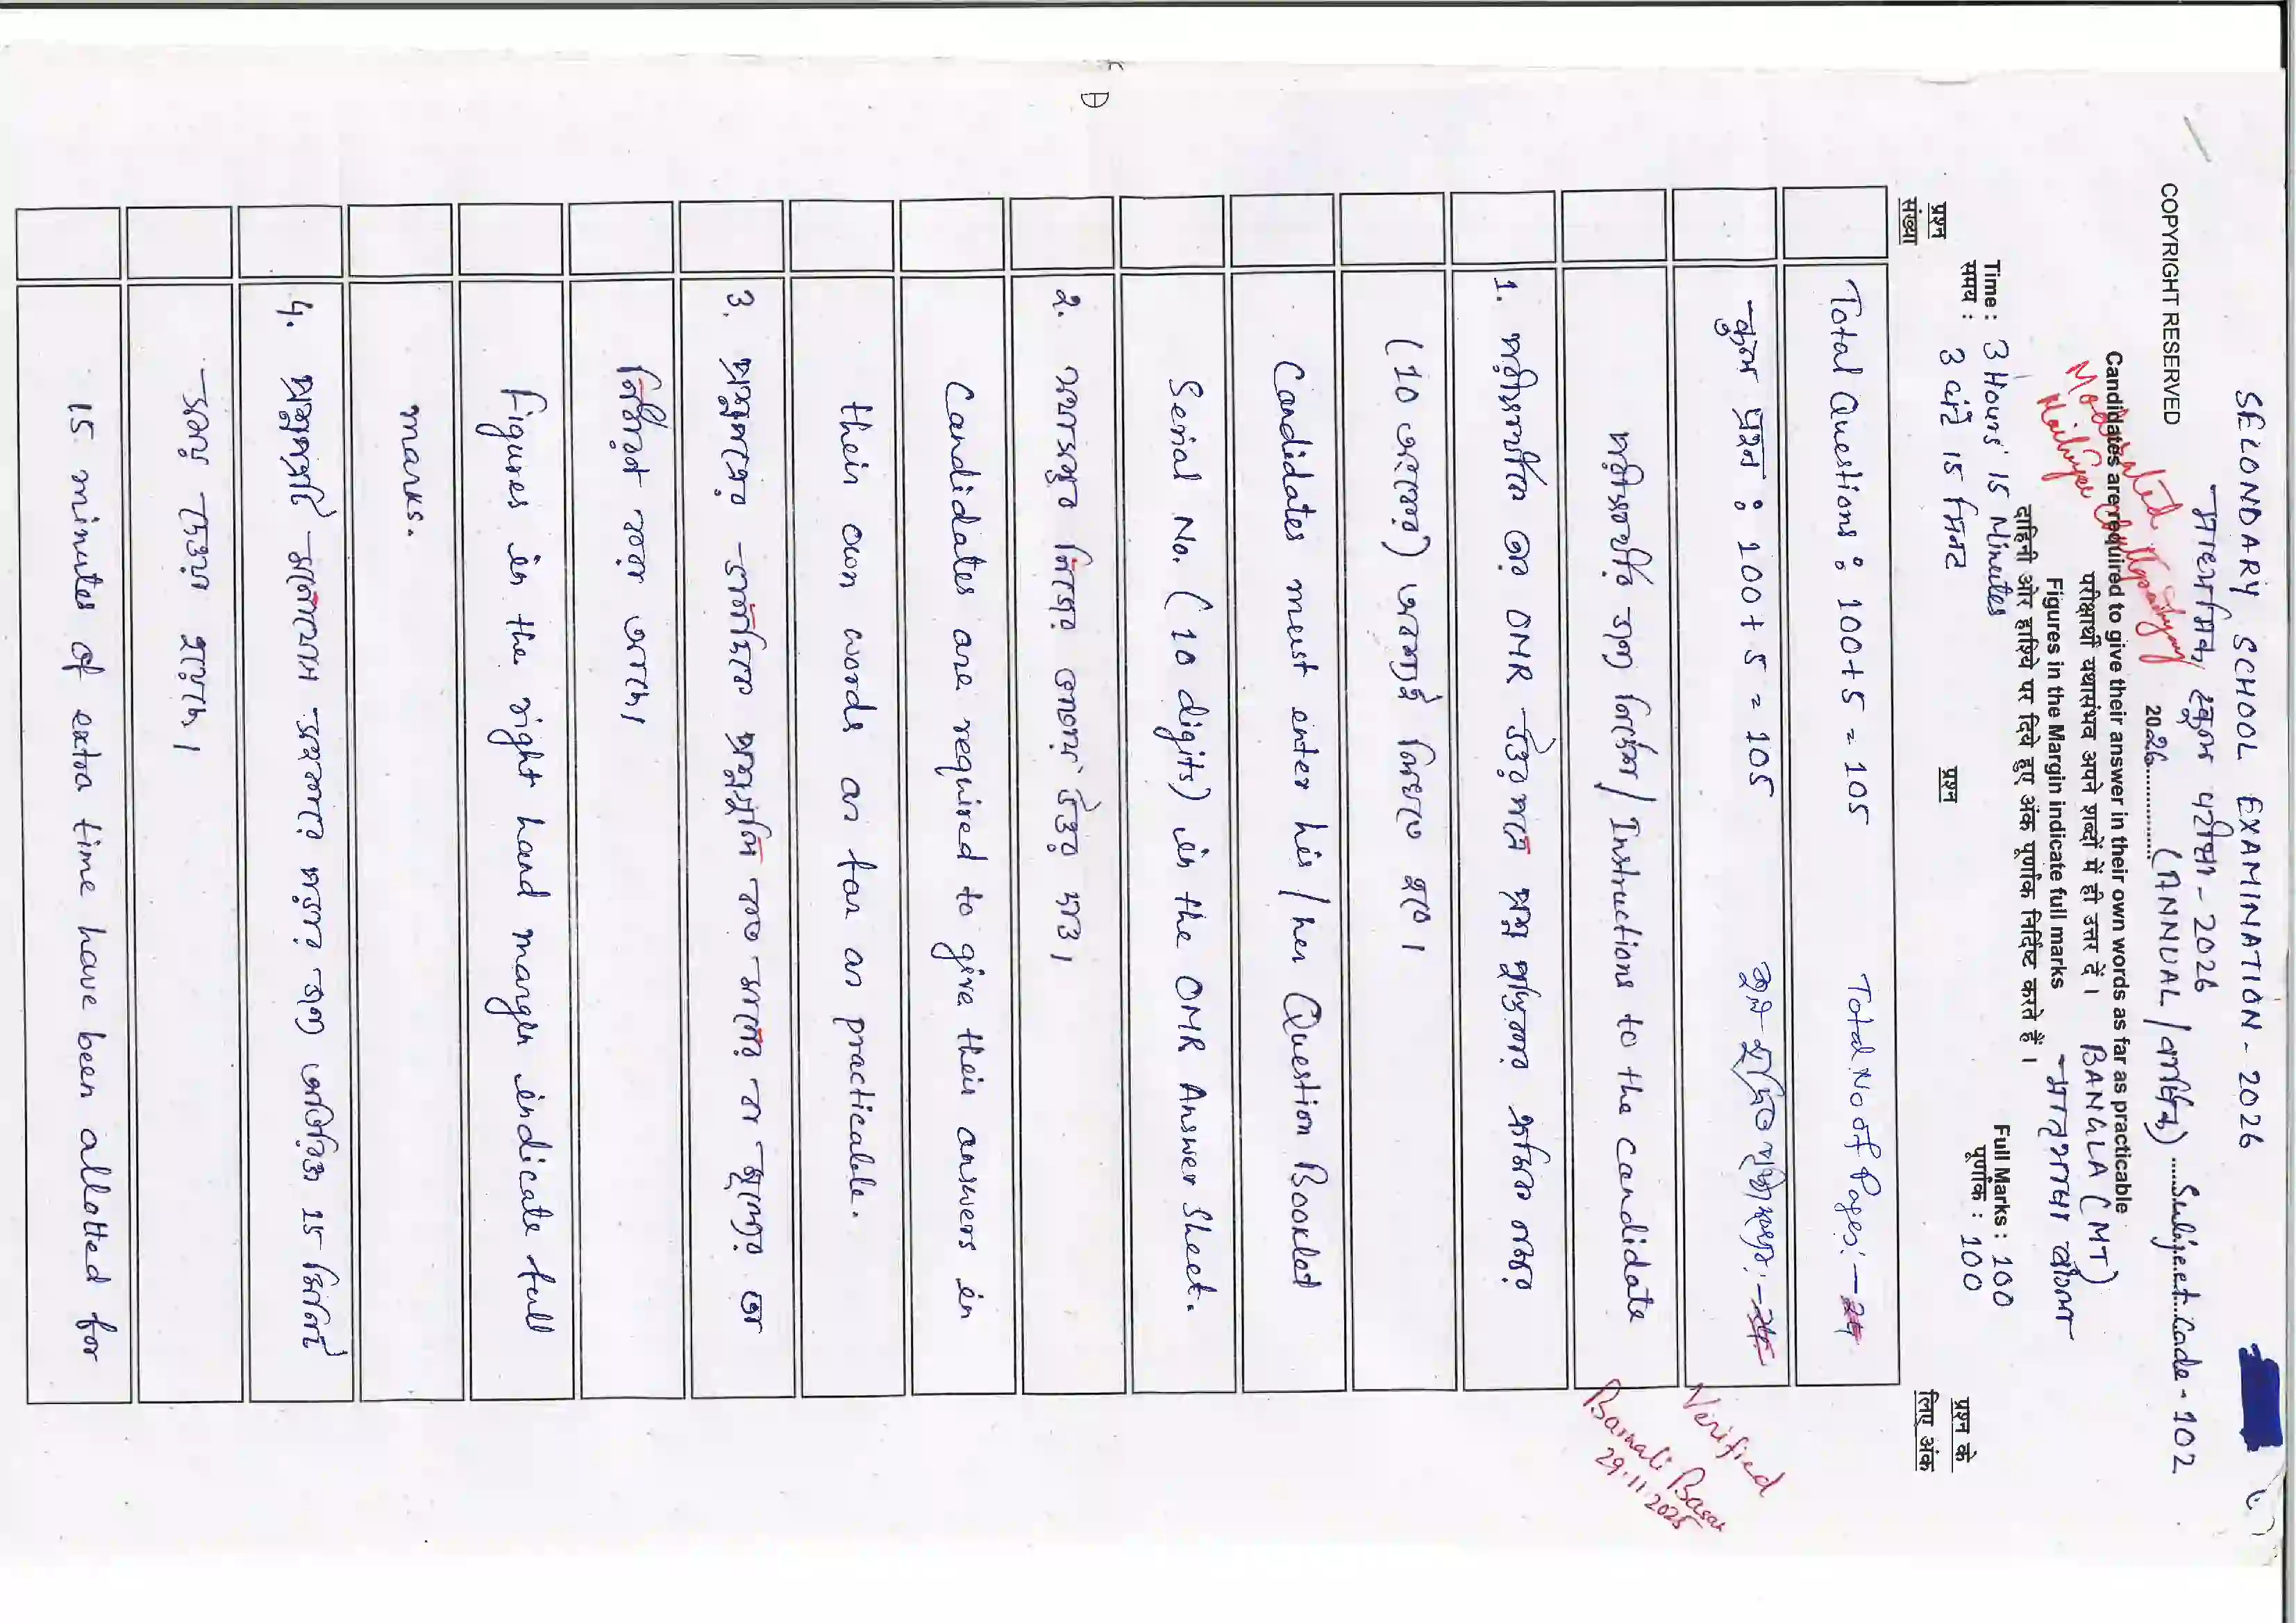 SECONDARY SCHOOL EXAMINATION - 2026
माध्यमिक स्कूल परीक्षा - 2026
COPYRIGHT RESERVED
2026............... (ANNUAL / वार्षिक) ......Subject Code - 102
Candidates are required to give their answer in their own words as far as practicable
Moderated
परीक्षार्थी यथासंभव अपने शब्दों में ही उत्तर दें।
BANGLA (MT)
Figures in the Margin indicate full marks
मातृभाषा बांग्ला
दाहिनी ओर हाशिये पर दिये हुए अंक पूर्णांक निर्दिष्ट करते हैं।
Time : 3 Hours 15 Minutes
Full Marks : 100
समय : 3 घंटे 15 मिनट
पूर्णांक : 100
प्रश्न संख्या
प्रश्न
प्रश्न के लिए अंक
Total Questions : 100 + 5 = 105 Total No of Pages : -
कुल प्रश्न : 100 + 5 = 105
Verified
Barnali Basak
29.11.2025
পরীক্ষার্থীর জন্য নির্দেশ / Instructions to the candidate
1. পরীক্ষার্থীকে তার OMR উত্তর পত্রে প্রশ্ন পুস্তিকার ক্রমিক নম্বর
(10 অঙ্কের) অবশ্যই লিখতে হবে।
Candidates must enter his / her Question Booklet
Serial No. (10 digits) in the OMR Answer Sheet.
2. যথাসম্ভব নিজের ভাষায় উত্তর দাও।
Candidates are required to give their answers in
their own words as far as practicable.
3. প্রশ্নপত্রের ডানদিকে প্রশ্নগুলি কত মানের বা মূল্যের তা
নির্ধারিত করা আছে।
Figures in the right hand margin indicate full
marks.
4. প্রশ্নপত্রটি মনোযোগ সহকারে পড়ার জন্য অতিরিক্ত 15 মিনিট
সময় দেওয়া হয়েছে।
15 minutes of extra time have been allotted for